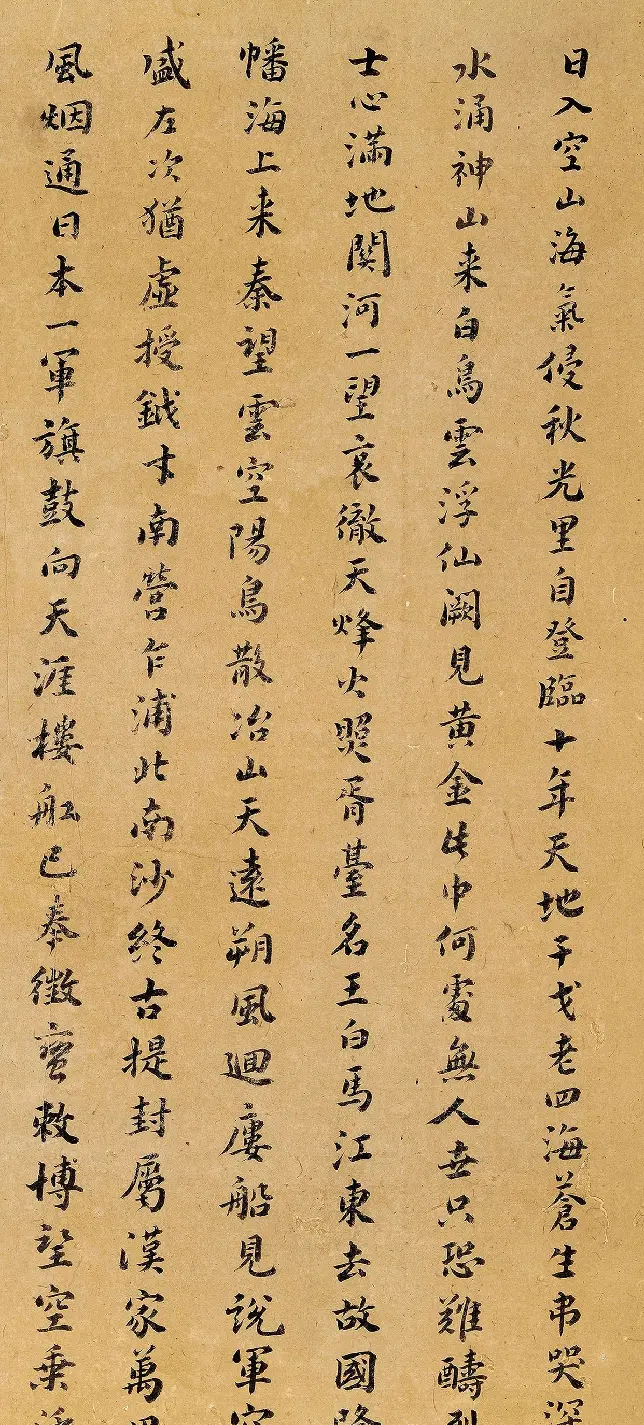 日入空山海氣侵秋光里自登臨十年天地干戈老四海蒼生弔哭深
水涌神山来白鳥雲浮仙闕見黄金此中何處無人世只恐難酬
士心滿地関河一望哀徹天烽火照胥臺名王白馬江東去故國降
幡海上来秦望雲空陽鳥散冶山天遠朔風迴廔船見說軍容
盛左次猶虛授鉞才南營乍浦北南沙終古提封屬漢家萬里
風烟通日本一軍旗鼓向天涯樓舩已奉徵蛮敕博望空乗